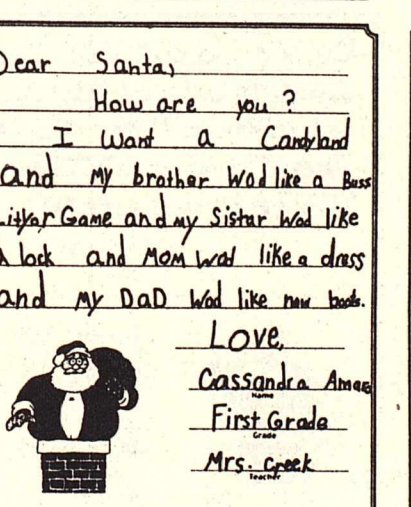 Dear Santa,
How are you?
I want a Candyland
and my brother Wod like a Buss
Lityar Game and my Sistar Wod like
A lock and MOM wod like a dress
and my DaD Wod like new
Love,
Cassandra
Name
First Grade
Grade
Mrs. Creek
Teacher